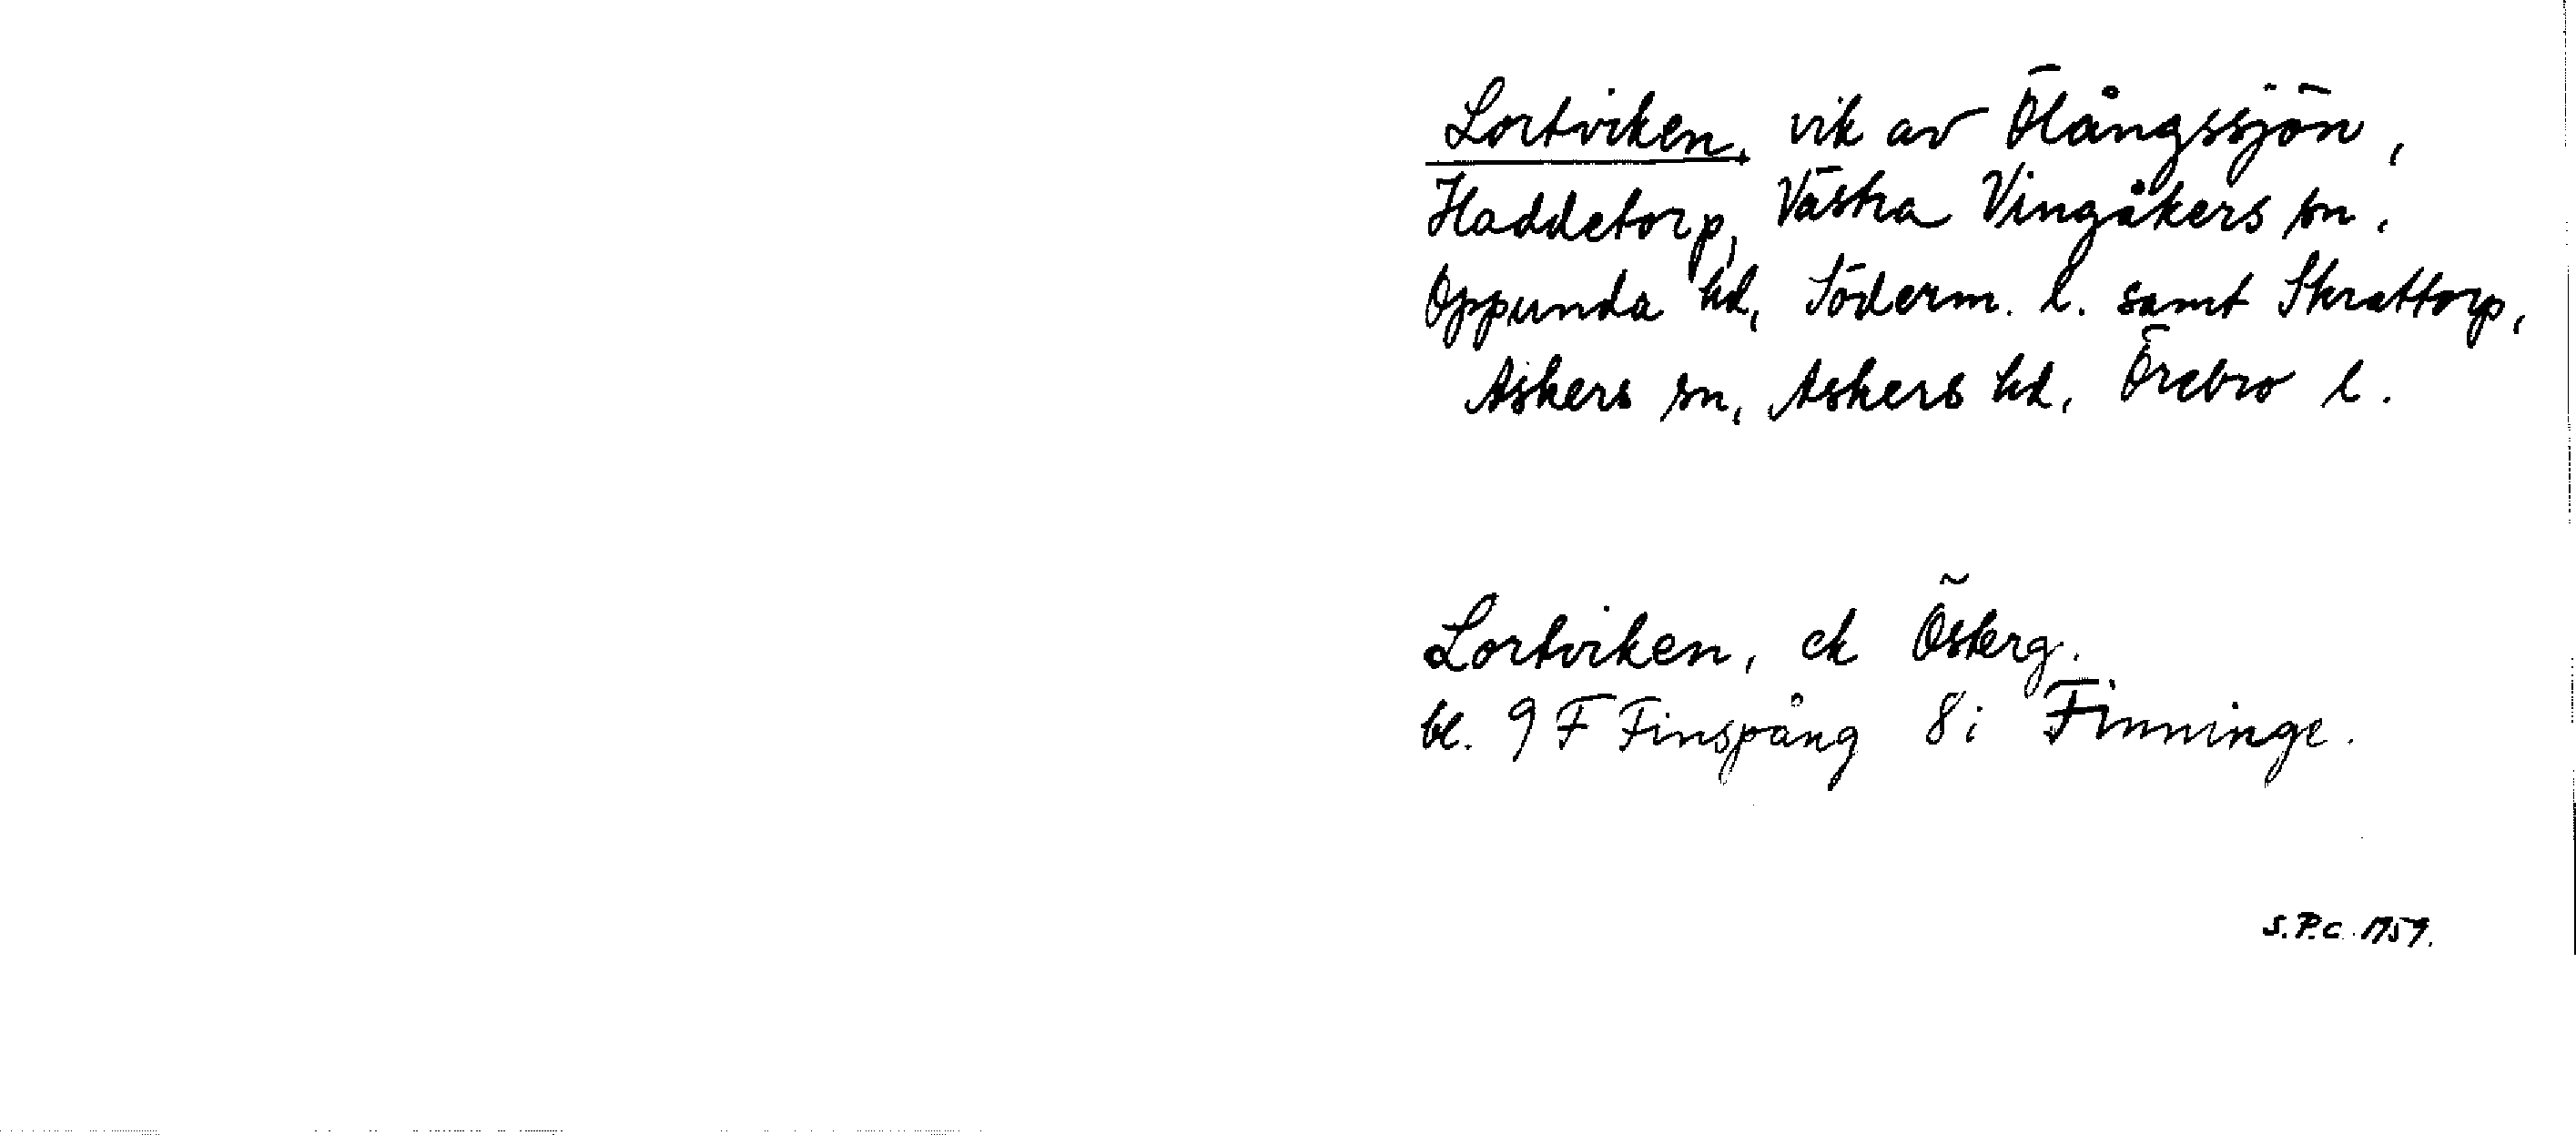 Lortviken, vik av Ölångssjön,
Haddetorp, Västra Vingåkers sn,
Oppunda hd, Söderm. l. samt Skrattorp,
Askers sn, Askers hd, Örebro l.
Lortviken, ek Österg.
bl. 9 F Finspång 8 i Finninge.
S.P.C. 1959.